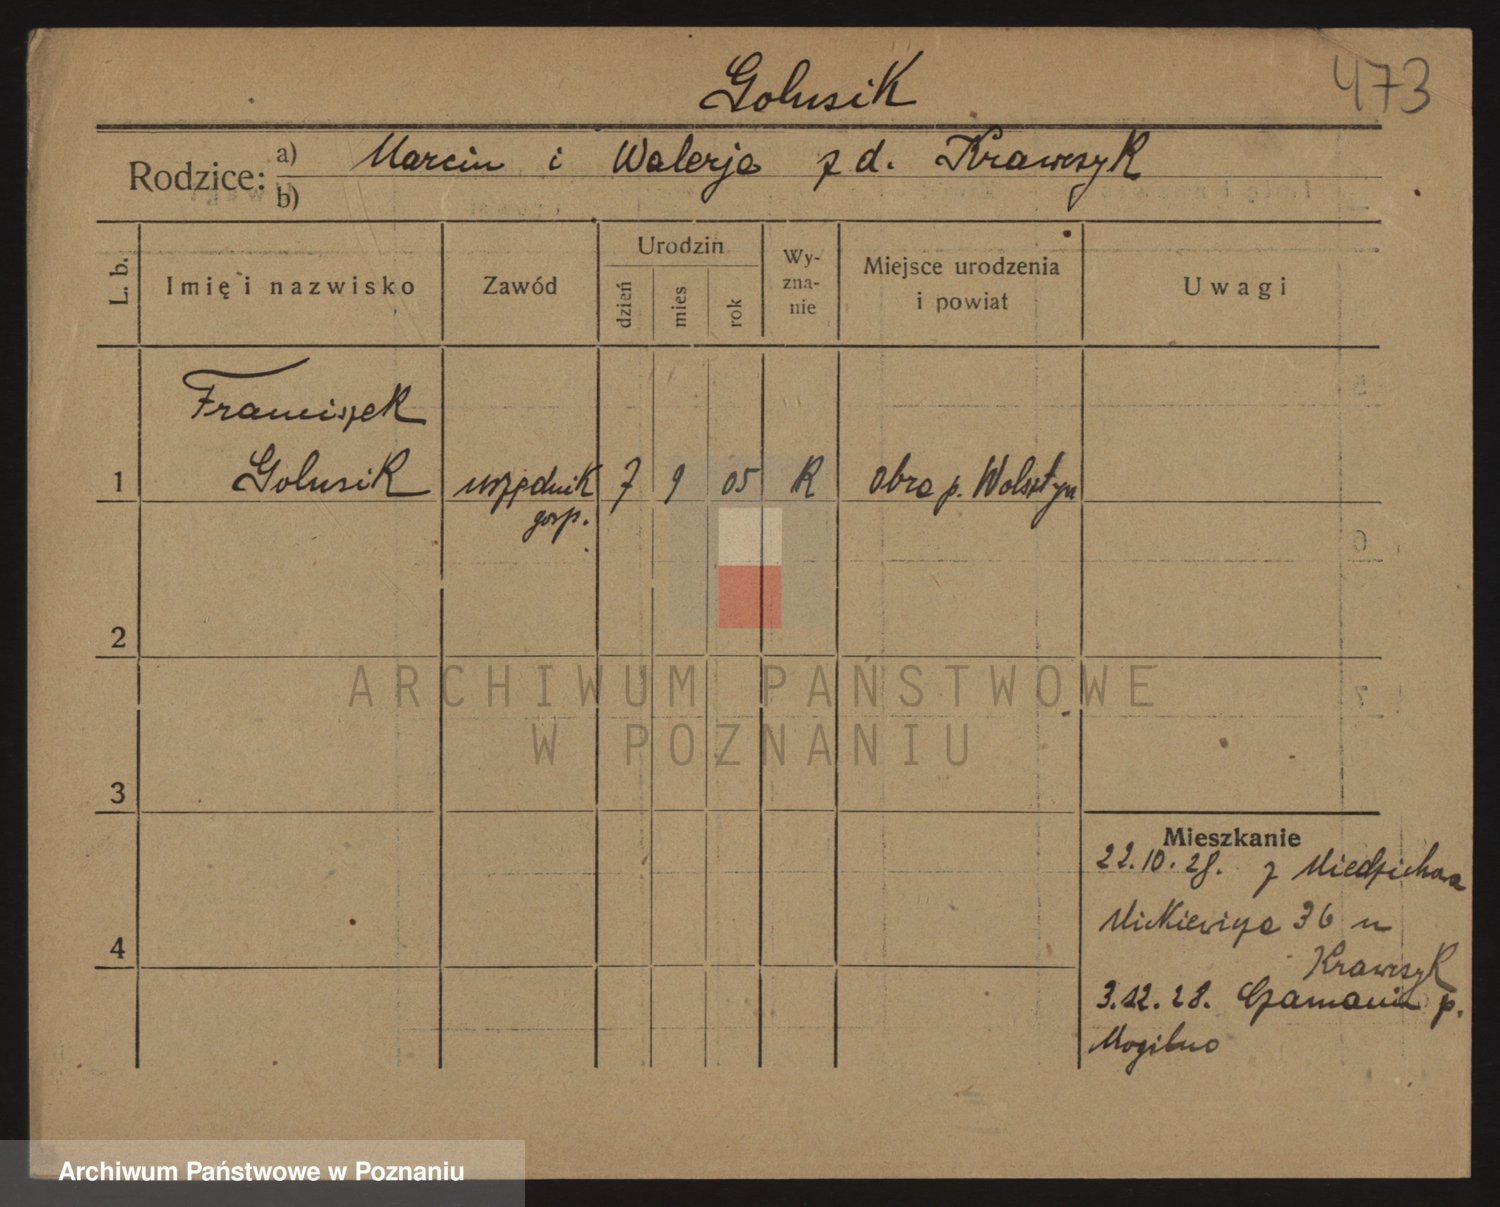 Golusik
473
Rodzice: a) Marcin i Walerja z d. Krawczyk
b)
L. b. Imię i nazwisko Zawód Urodzin dzień mies rok Wy-zna-nie Miejsce urodzenia i powiat Uwagi
Franciszek
1 Golusik urzędnik 7 9 05 R Obra p. Wolsztyn
gosp.
2
ARCHIWUM PAŃSTWOWE
W POZNANIU
3
Mieszkanie
22.10.28. z Miedzichowa
Mickiewicza 36 u
4
Krawczyk
3.12.28. p.
Mogilno
Archiwum Państwowe w Poznaniu